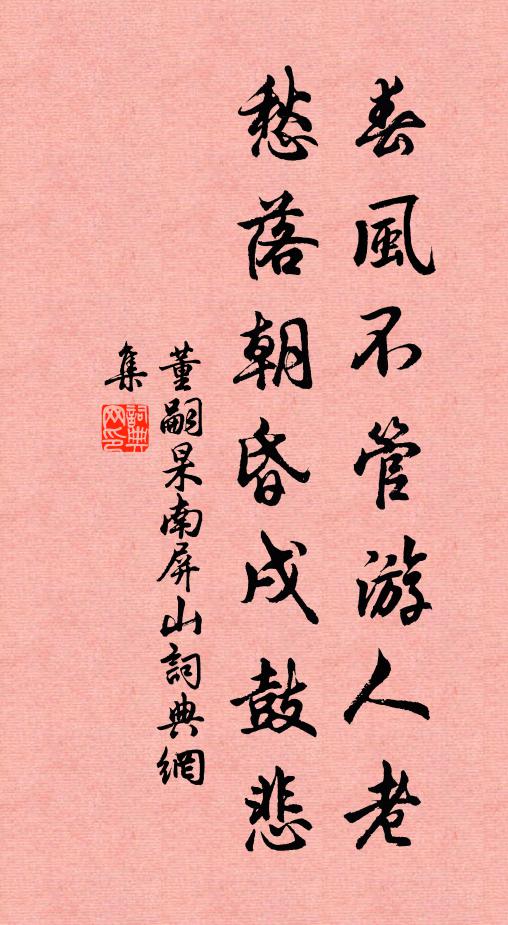 春風不管游人老
愁落朝昏戍鼓悲
董嗣杲南屏山詞典網
集
詞典網印